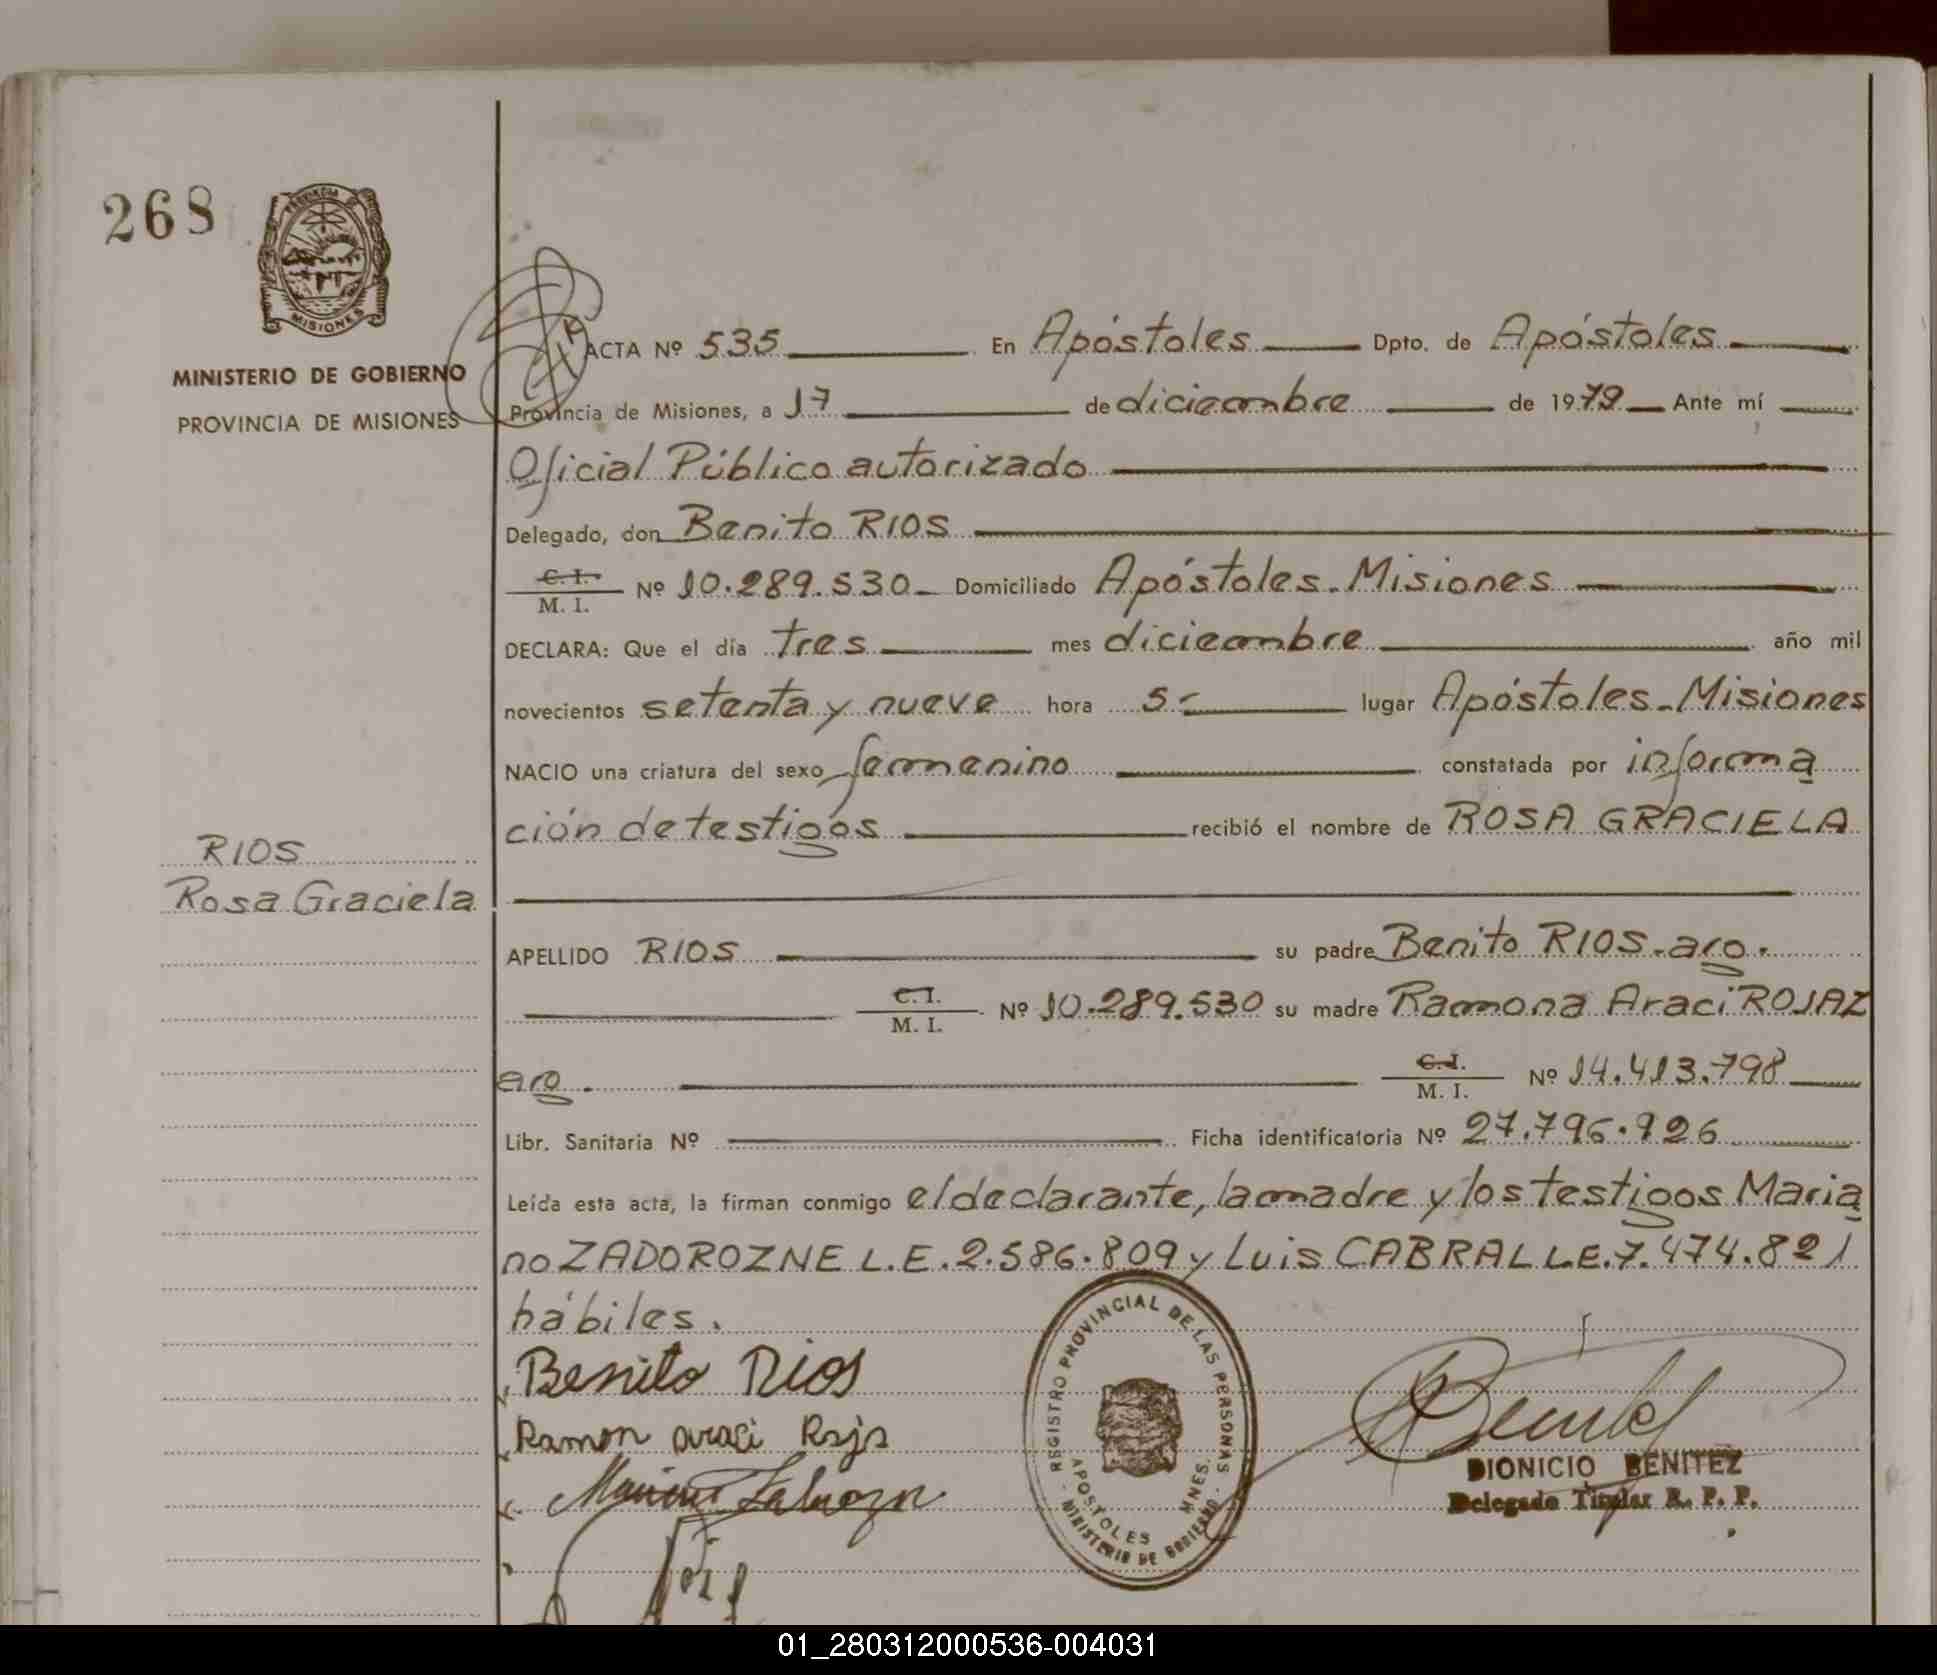 268
PROVINCIA DE
MISIONES
MINISTERIO DE GOBIERNO
PROVINCIA DE MISIONES
ACTA Nº 535 En Apóstoles Dpto. de Apóstoles
Provincia de Misiones, a 17 de diciembre de 1979 Ante mí
Oficial Público autorizado
Delegado, don Benito RIOS
C. I.
M. I. Nº 10.289.530 Domiciliado Apóstoles - Misiones
DECLARA: Que el día tres mes diciembre año mil
novecientos setenta y nueve hora 5 lugar Apóstoles - Misiones
NACIO una criatura del sexo femenino constatada por informa
ción de testigos recibió el nombre de ROSA GRACIELA
RIOS
Rosa Graciela
APELLIDO RIOS su padre Benito RIOS - argº.
C. I.
M. I. Nº 10.289.530 su madre Ramona Araci ROJAZ
argº. C. I.
M. I. Nº 14.413.798
Libr. Sanitaria Nº Ficha identificatoria Nº 27.796.926
Leída esta acta, la firman conmigo el declarante, la madre y los testigos Maria
no ZADOROZNE L.E. 2.586.809 y Luis CABRAL L.E. 7.474.821
hábiles.
Benito Rios
Ramon araci Rojs
REGISTRO PROVINCIAL DE LAS PERSONAS
APOSTOLES MNES.
MINISTERIO DE GOBIERNO
DIONICIO BENITEZ
Delegado Titular R. P. P.
01_280312000536-004031